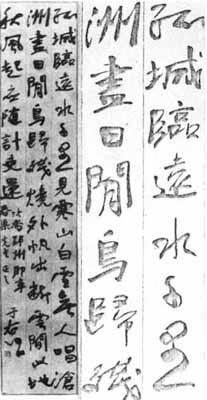 孤城臨遠水千里
洲盡日閒鳥歸殘
孤城臨遠水千里見寒山白雪無人唱滄
洲盡日閒鳥歸殘燒外帆出斷雲間此地
秋風起應隨計吏還
郢州即事
先生正之
于右任